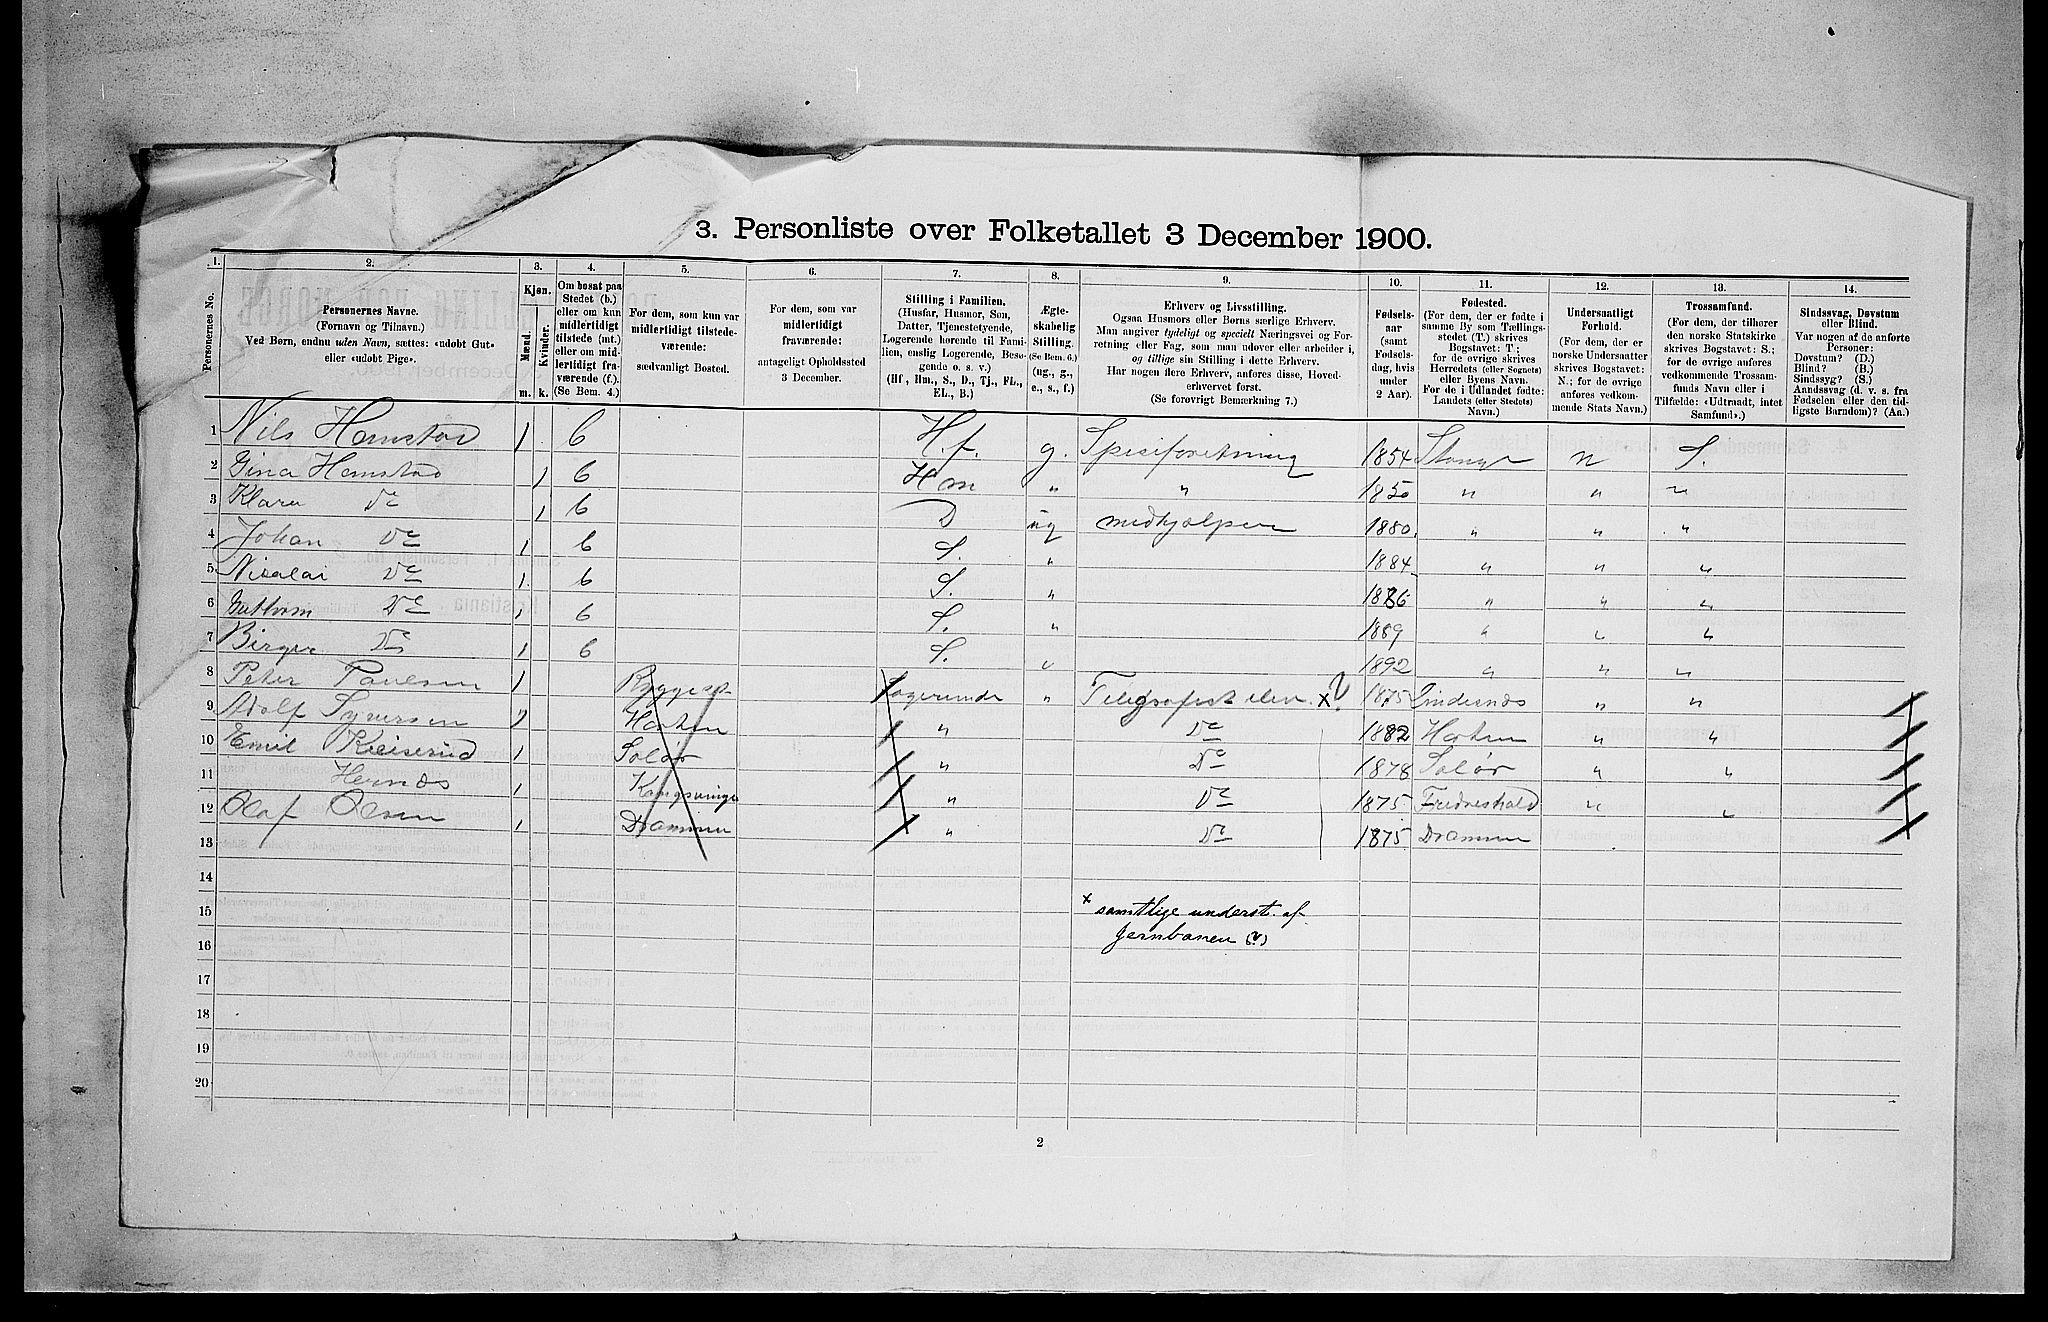 3. Personliste over Folketallet 3 December 1900.
1. 2. 3. 4. 5. 6. 7. 8. 9. 10. 11. 12. 13. 14.
Personernes No.
Personernes Navne.
(Fornavn og Tilnavn.)
Ved Børn, endnu uden Navn, sættes: «udøbt Gut»
eller «udøbt Pige».
Kjøn.
Mænd.
Kvinder.
m. k.
Om bosat paa
Stedet (b.)
eller om kun
midlertidigt
tilstede (mt.)
eller om mid-
lertidigt fra-
værende (f.)
(Se Bem. 4.)
For dem, som kun var
midlertidigt tilstede-
værende:
sædvanligt Bosted.
For dem, som var
midlertidigt
fraværende:
antageligt Opholdssted
3 December.
Stilling i Familien.
(Husfar, Husmor, Søn,
Datter, Tjenestetyende,
Logerende hørende til Fami-
lien, enslig Logerende, Besø-
gende o. s. v.)
(Hf, Hm., S., D., Tj., FL.,
EL., B.)
Ægte-
skabelig
Stilling.
(Se Bem. 6.)
(ug., g.,
e., s., f.)
Erhverv og Livsstilling.
Ogsaa Husmors eller Børns særlige Erhverv.
Man angiver tydeligt og specielt Næringsvei og For-
retning eller Fag, som man udøver eller arbeider i,
og tillige sin Stilling i dette Erhverv.
Har nogen flere Erhverv, anføres disse, Hoved-
erhvervet først.
(Se forøvrigt Bemærkning 7.)
Fødsels-
aar
(samt
Fødsels-
dag, hvis
under
2 Aar).
Fødested.
(For dem, der er fødte i
samme By som Tællings-
stedet (T.) skrives
Bogstavet: T;
for de øvrige skrives
Herredets (eller Sognets)
eller Byens Navn.
For de i Udlandet fødte:
Landets (eller Stedets)
Navn.)
Undersaatligt
Forhold.
(For dem, der er
norske Undersaatter
skrives Bogstavet:
N.; for de øvrige
anføres vedkom-
mende Stats Navn.)
Trossamfund.
(For dem, der tilhører
den norske Statskirke
skrives Bogstavet: S.;
for de øvrige anføres
vedkommende Trossam-
funds Navn eller i
Tilfælde: «Udtraadt, intet
Samfund».)
Sindssvag, Døvstum
eller Blind.
Var nogen af de anførte
Personer:
Døvstum? (D.)
Blind? (B.)
Sindssyg? (S.)
Aandssvag (d. v. s. fra
Fødselen eller den tid-
ligste Barndom)? (Aa.)
1 Nils Hemstad 1 b H.f. g. Spiseforretning 1854 Stange n S.
2 Gina Hemstad 1 b Hm " " 1850 " " "
3 Klara Do 1 b D ug medhjælper 1880 " " "
4 Johan Do 1 b S. " 1884 " " "
5 Nicolai Do 1 b S. " 1886 " " "
6 Guthorm Do 1 b S. " 1889 " " "
7 Birger Do 1 b S. " 1892 " " "
8 Peter Paulsen 1 Logerende " Telegrafist elev. x? 1875 Lindesnæs " "
9 Adolf Syversen 1 Horten " Do 1882 Horten " "
10 Emil 1 Solør " Do 1878 Solør " "
11 Hernæs 1 Kongsvinger " Do 1875 Fredrikshald " "
12 Olaf Olsen 1 Drammen " Do 1875 Drammen
13
14
15
16
17
18
19
20
x samtlige underst. af
Jernbanen (?)
2